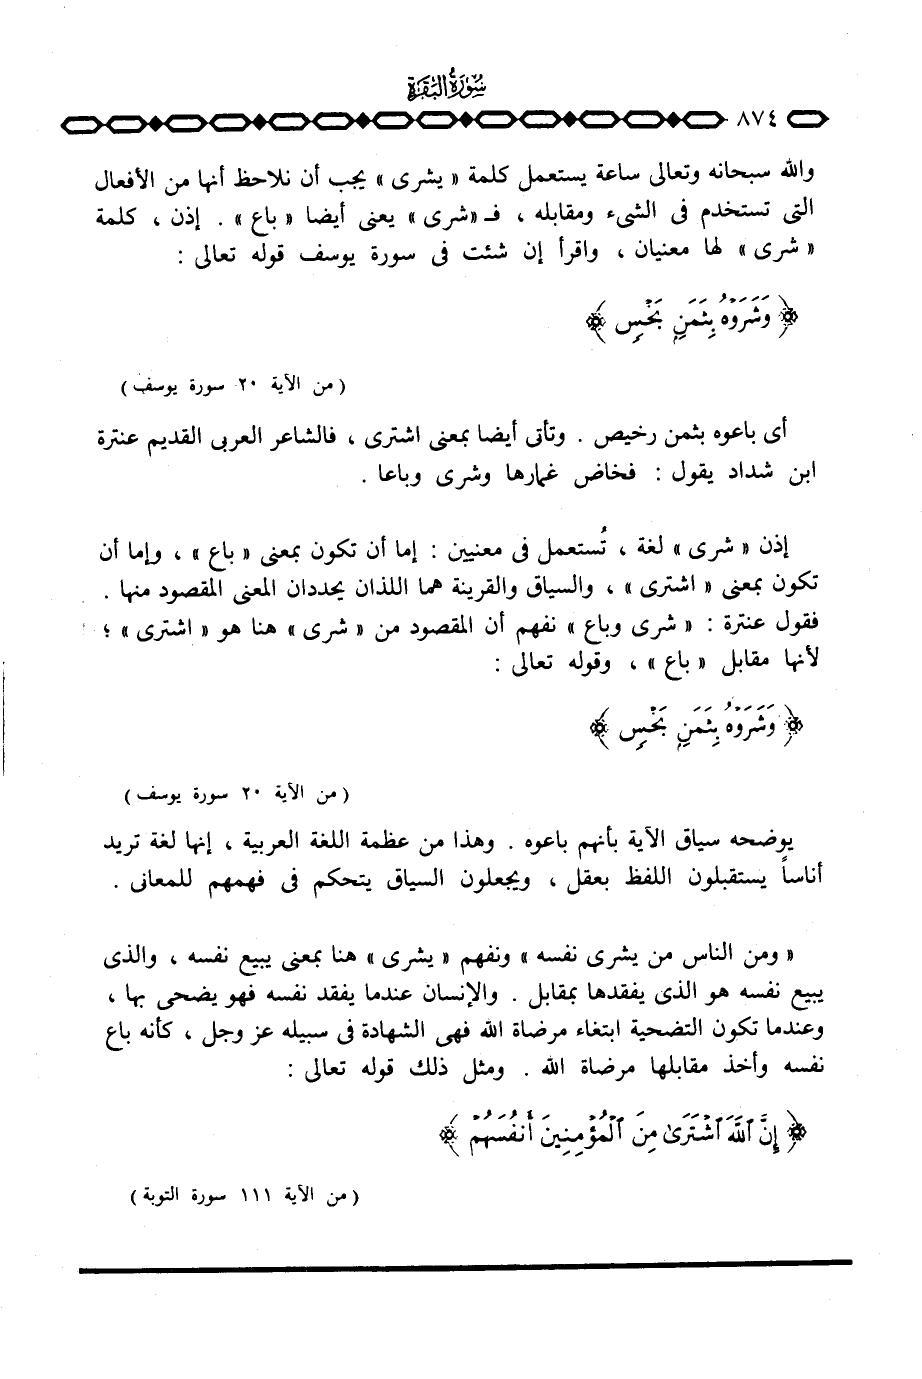 سورة البقرة
٨٧٤
والله سبحانه وتعالى ساعة يستعمل كلمة « يشرى » يجب أن نلاحظ أنها من الأفعال
التى تستخدم فى الشىء ومقابله ، فـ «شرى » يعنى أيضا « باع » . إذن ، كلمة
« شرى » لها معنيان ، واقرأ إن شئت فى سورة يوسف قوله تعالى :
﴿ وَشَرَوْهُ بِثَمَنٍ بَخْسٍ ﴾
( من الآية ٢٠ سورة يوسف )
أى باعوه بثمن رخيص . وتأتى أيضا بمعنى اشترى ، فالشاعر العربى القديم عنترة
ابن شداد يقول : فخاض غمارها وشرى وباعا .
إذن « شرى » لغة ، تُستعمل فى معنيين : إما أن تكون بمعنى « باع » ، وإما أن
تكون بمعنى « اشترى » ، والسياق والقرينة هما اللذان يحددان المعنى المقصود منها .
فقول عنترة : « شرى وباع » نفهم أن المقصود من « شرى » هنا هو « اشترى » ؛
لأنها مقابل « باع » ، وقوله تعالى :
﴿ وَشَرَوْهُ بِثَمَنٍ بَخْسٍ ﴾
( من الآية ٢٠ سورة يوسف )
يوضحه سياق الآية بأنهم باعوه . وهذا من عظمة اللغة العربية ، إنها لغة تريد
أناساً يستقبلون اللفظ بعقل ، ويجعلون السياق يتحكم فى فهمهم للمعانى .
« ومن الناس من يشرى نفسه » ونفهم « يشرى » هنا بمعنى يبيع نفسه ، والذى
يبيع نفسه هو الذى يفقدها بمقابل . والإنسان عندما يفقد نفسه فهو يضحى بها ،
وعندما تكون التضحية ابتغاء مرضاة الله فهى الشهادة فى سبيله عز وجل ، كأنه باع
نفسه وأخذ مقابلها مرضاة الله . ومثل ذلك قوله تعالى :
﴿ إِنَّ ٱللَّهَ ٱشْتَرَىٰ مِنَ ٱلْمُؤْمِنِينَ أَنفُسَهُمْ ﴾
( من الآية ١١١ سورة التوبة )